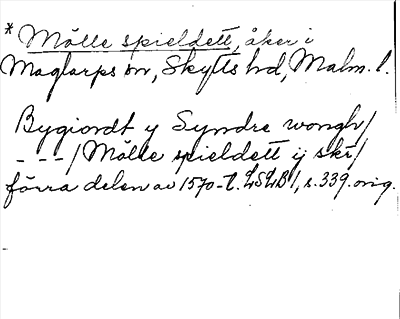 * Mölle spieldett, åker i
Maglarps sn, Skytts hd, Malm. l.
Bygiordt y Syndre wongh/
---/Mölle spieldett ij skr/
förra delen av 1570-t. LSLB 1, s. 339. orig.